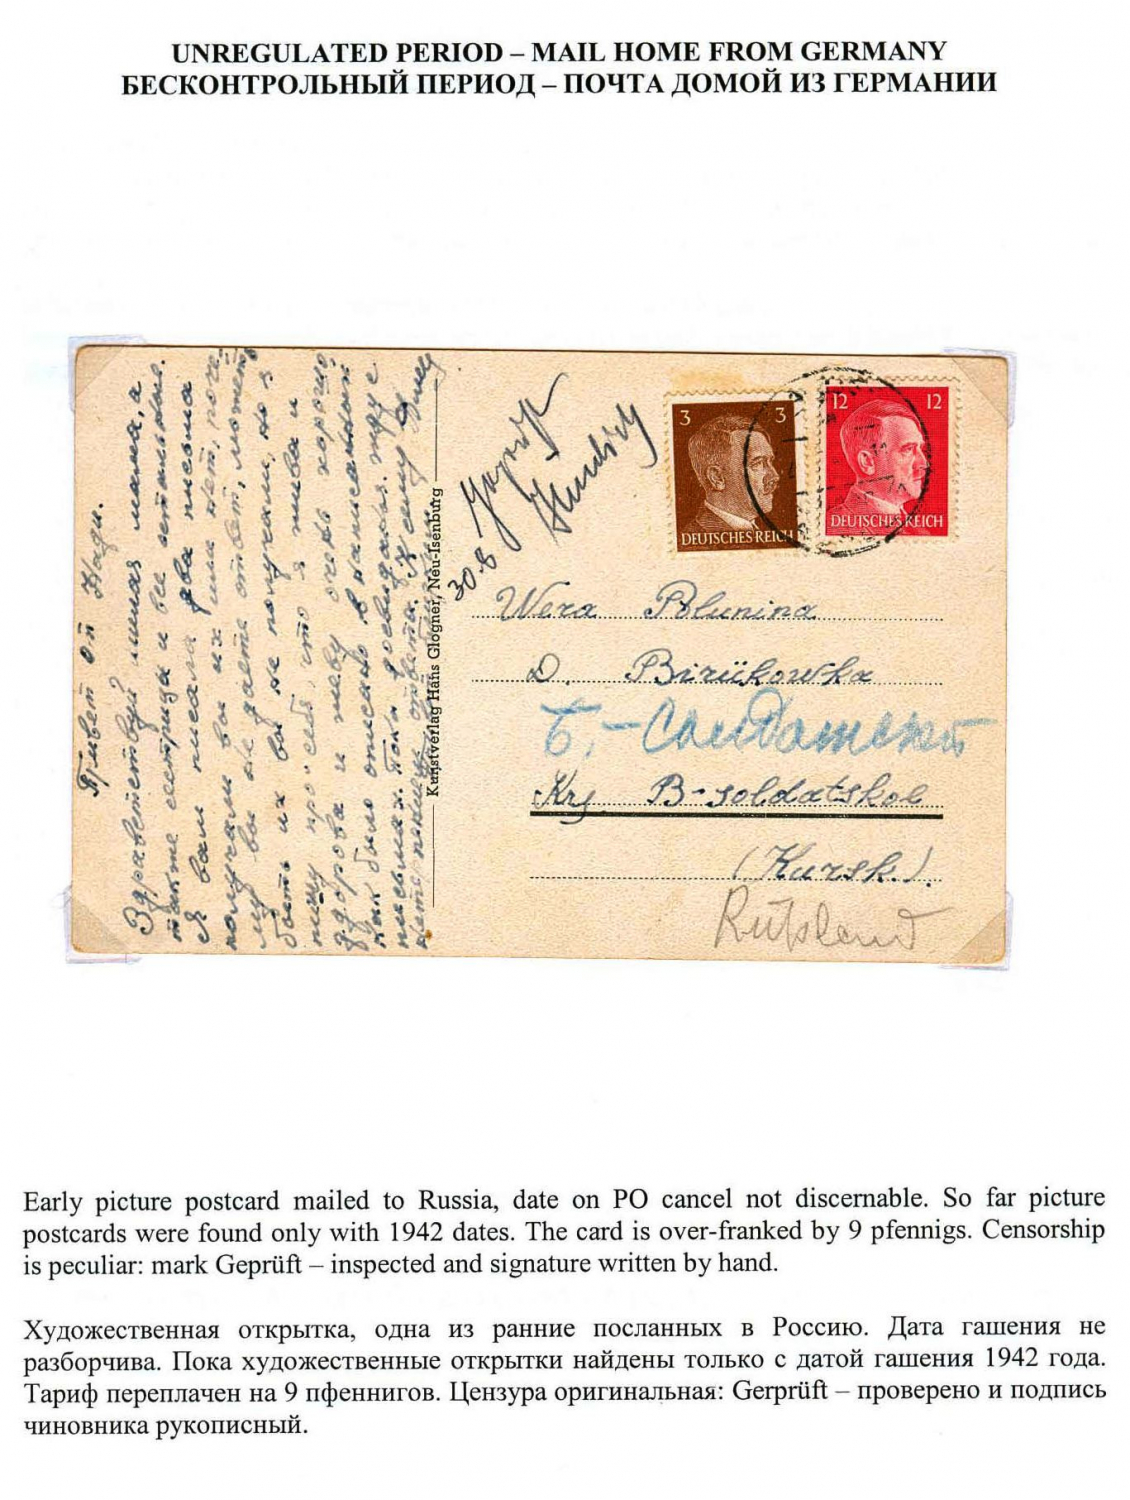 UNREGULATED PERIOD – MAIL HOME FROM GERMANY
БЕСКОНТРОЛЬНЫЙ ПЕРИОД – ПОЧТА ДОМОЙ ИЗ ГЕРМАНИИ
Привет от Нади.
Здравствуй милая мама, а
также сестрицы и все остальные.
Я вам писала два письма
получали вы их или нет, поче-
му вы не даете ответ, может
быть их вы не получали, но я
пишу про себя, что я жива и
здорова и живу очень хорошо,
как было описано в
письмах. Пока досвидания. Жду с
нетерпением ответа.
Kunstverlag Hans Glogner, Neu-Isenburg
30.8
3 3
DEUTSCHES REICH
12 12
DEUTSCHES REICH
Wera Polunina
D. Birükowka
Б.-Солдатский
Krj B-soldatskoe
(Kursk).
Rußland
Early picture postcard mailed to Russia, date on PO cancel not discernable. So far picture
postcards were found only with 1942 dates. The card is over-franked by 9 pfennigs. Censorship
is peculiar: mark Geprüft – inspected and signature written by hand.
Художественная открытка, одна из ранние посланных в Россию. Дата гашения не
разборчива. Пока художественные открытки найдены только с датой гашения 1942 года.
Тариф переплачен на 9 пфеннигов. Цензура оригинальная: Gerprüft – проверено и подпись
чиновника рукописный.